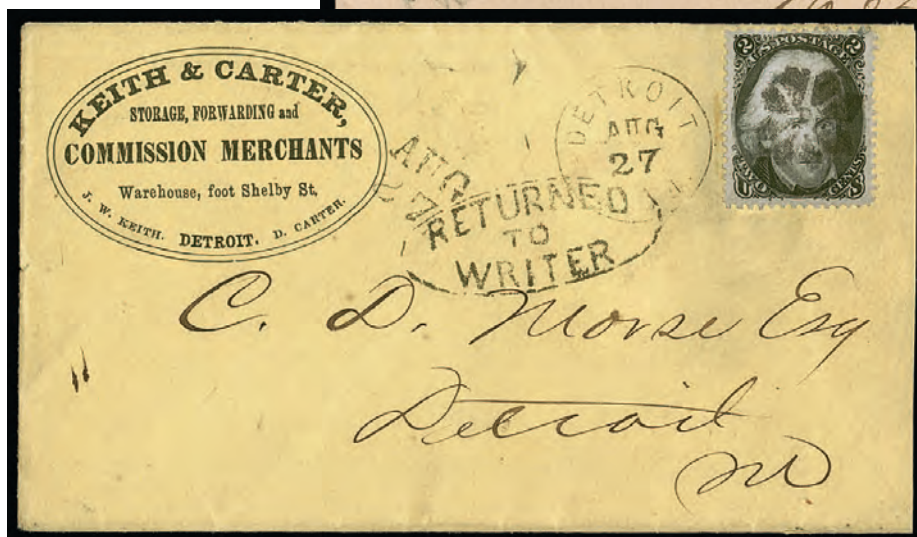 KEITH & CARTER,
STORAGE, FORWARDING and
COMMISSION MERCHANTS
Warehouse, foot Shelby St.
J. W. KEITH. DETROIT. D. CARTER.
DETROIT
AUG
27
AUG
27
RETURNED
TO
WRITER
2 U.S. POSTAGE 2
U TWO CENTS S
C. D. Morse Esq
Detroit
M